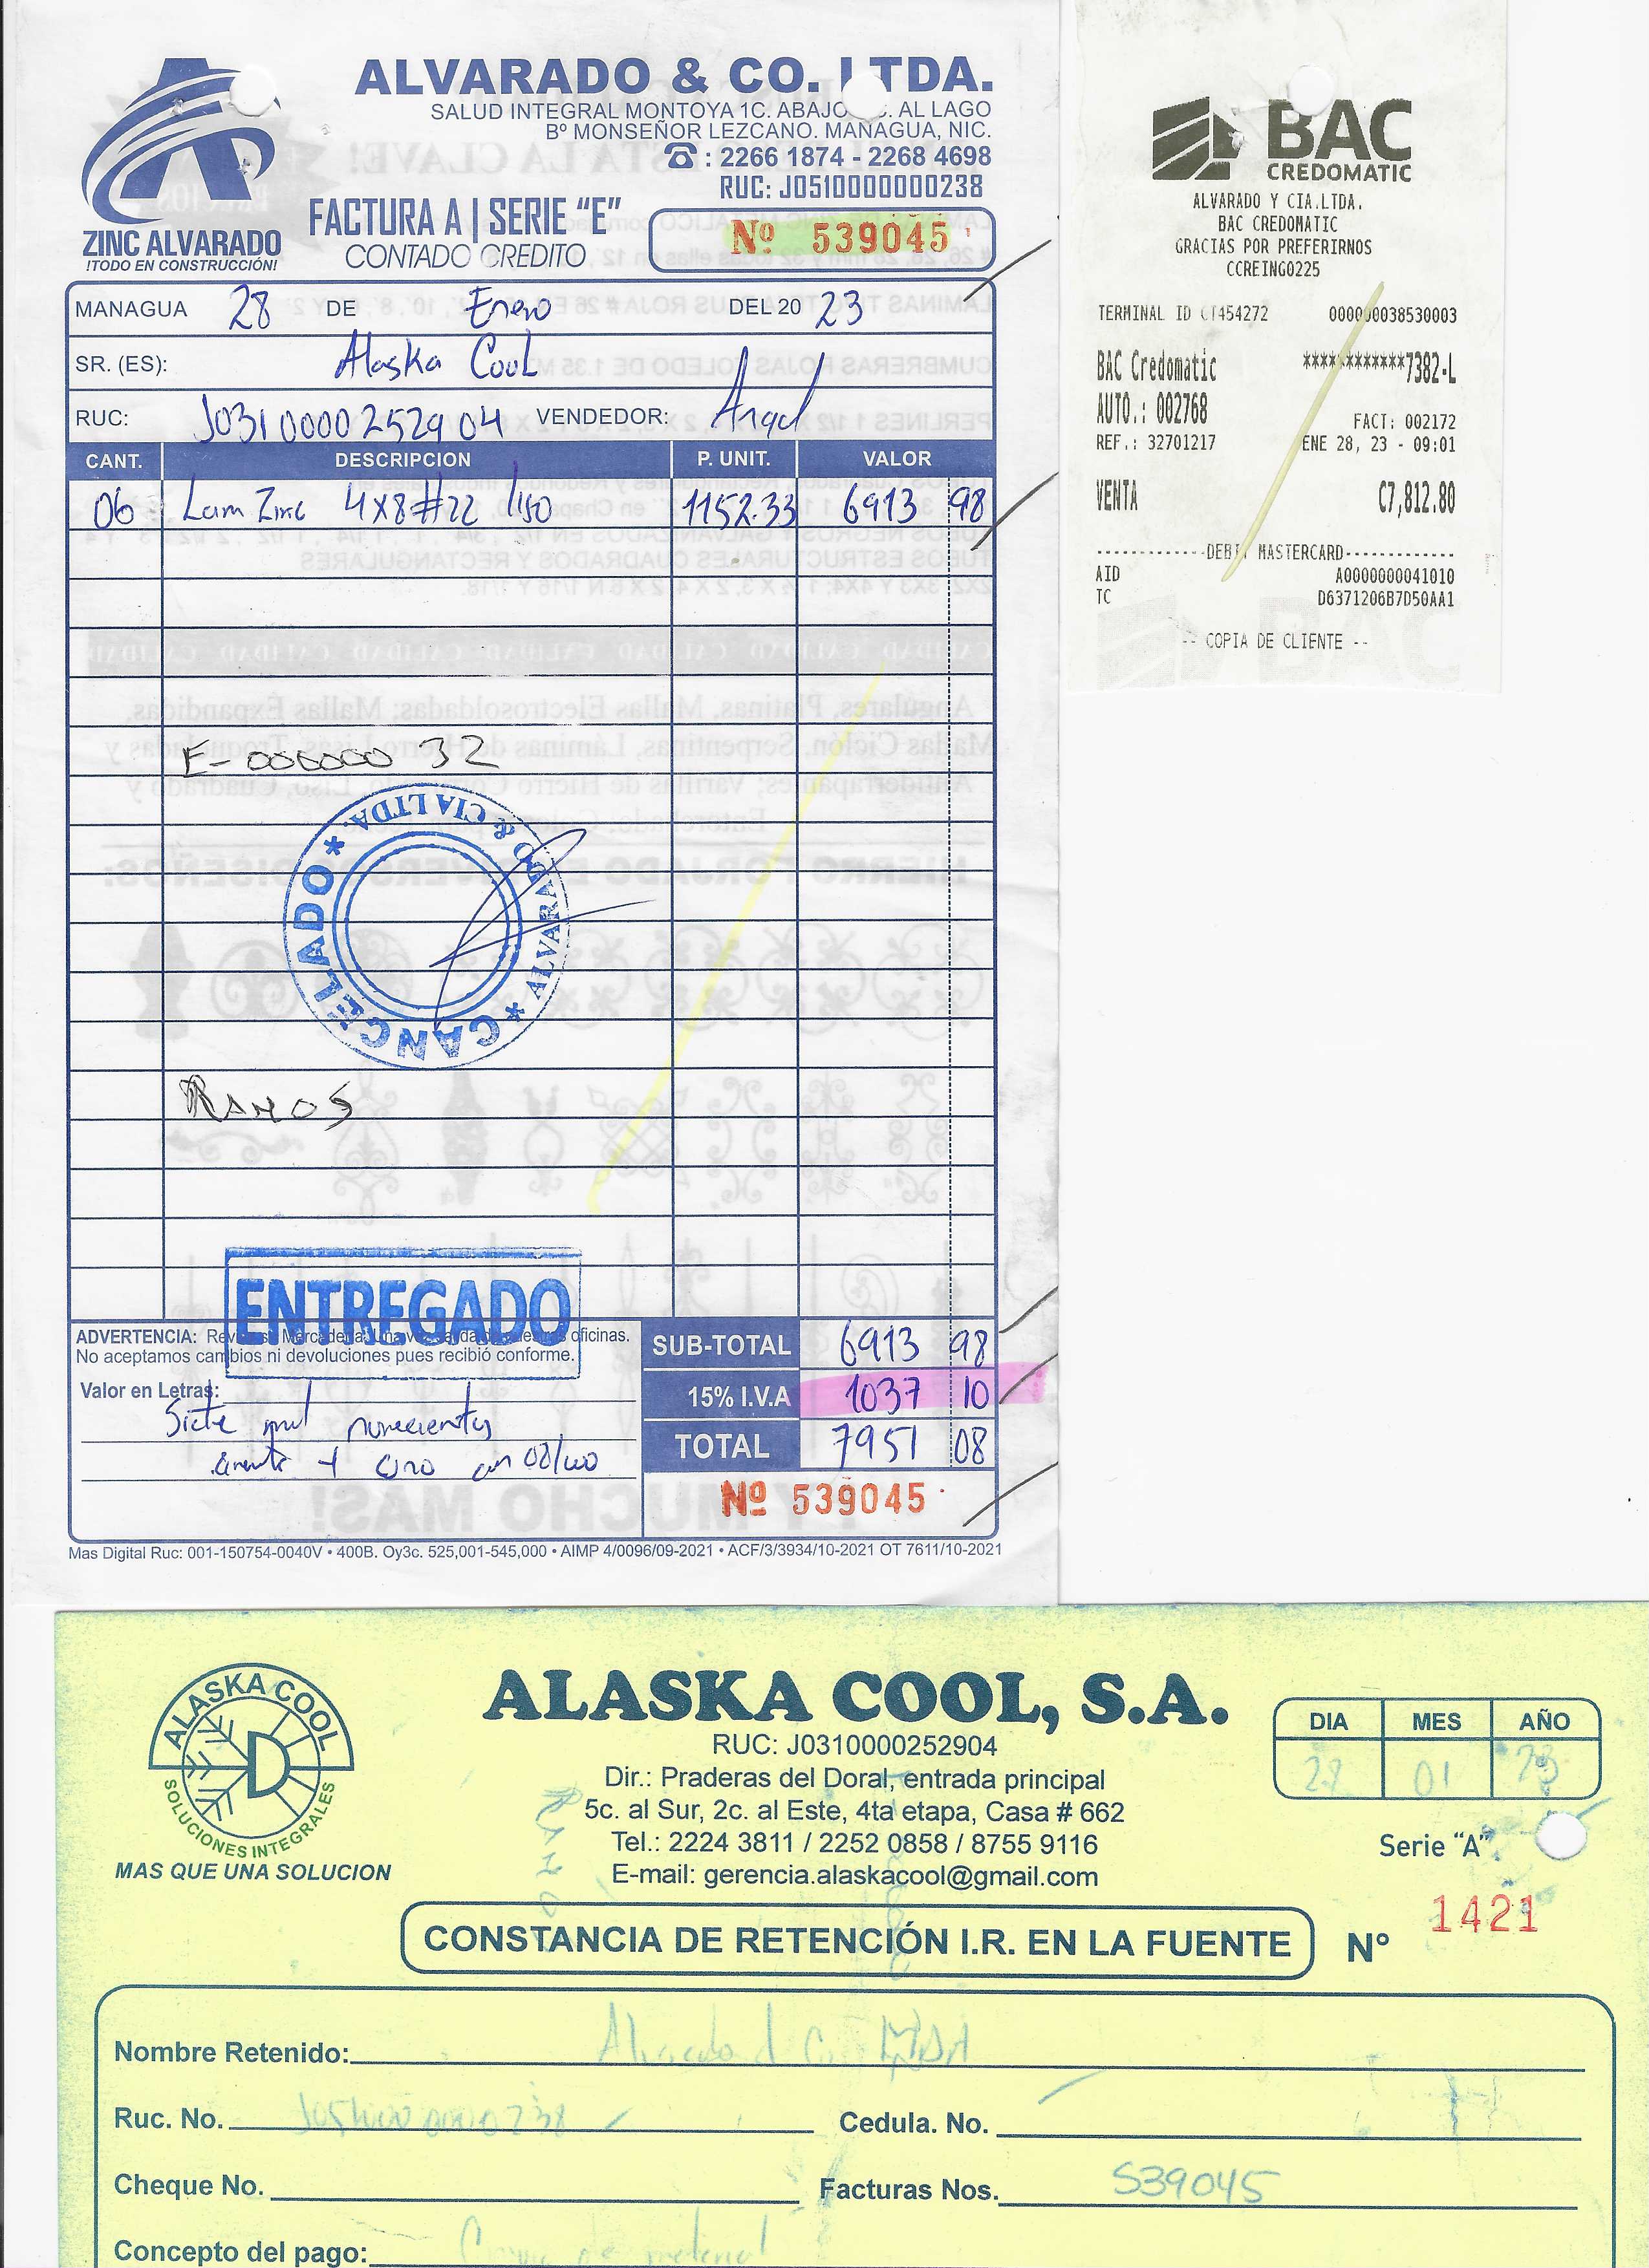 ALVARADO & CO. LTDA.
SALUD INTEGRAL MONTOYA 1C. ABAJO C. AL LAGO
Bº MONSEÑOR LEZCANO. MANAGUA, NIC.
☎: 2266 1874 - 2268 4698
RUC: J0510000000238
ZINC ALVARADO
!TODO EN CONSTRUCCIÓN!
FACTURA A | SERIE "E"
CONTADO CREDITO
Nº 539045
MANAGUA 28 DE Enero DEL 20 23
SR. (ES): Alaska Cool
RUC: J0310000252904 VENDEDOR: Angel
CANT. DESCRIPCION P. UNIT. VALOR
06 Lam Zinc 4x8 #22 liso 1152.33 6913 98
E-000000 32
CANCELADO * ALVARADO & CIA LTDA. *
RAMOS
ENTREGADO
ADVERTENCIA: Revise su Mercadería. Una vez salida de nuestras oficinas.
No aceptamos cambios ni devoluciones pues recibió conforme.
Valor en Letras:
Siete mil novecientos
cincuenta y uno con 08/100
SUB-TOTAL 6913 98
15% I.V.A 1037 10
TOTAL 7951 08
Nº 539045
Mas Digital Ruc: 001-150754-0040V • 400B. Oy3c. 525,001-545,000 • AIMP 4/0096/09-2021 • ACF/3/3934/10-2021 OT 7611/10-2021
BAC
CREDOMATIC
ALVARADO Y CIA.LTDA.
BAC CREDOMATIC
GRACIAS POR PREFERIRNOS
CCREING0225
TERMINAL ID CT454272 000000038530003
BAC Credomatic ************7382-L
AUTO.: 002768 FACT: 002172
REF.: 32701217 ENE 28, 23 - 09:01
VENTA C7,812.80
------------DEBIT MASTERCARD------------
AID A0000000041010
TC D6371206B7D50AA1
-- COPIA DE CLIENTE --
ALASKA COOL
SOLUCIONES INTEGRALES
MAS QUE UNA SOLUCION
ALASKA COOL, S.A.
RUC: J0310000252904
Dir.: Praderas del Doral, entrada principal
5c. al Sur, 2c. al Este, 4ta etapa, Casa # 662
Tel.: 2224 3811 / 2252 0858 / 8755 9116
E-mail: gerencia.alaskacool@gmail.com
DIA MES AÑO
28 01 23
Serie "A"
CONSTANCIA DE RETENCIÓN I.R. EN LA FUENTE Nº 1421
Nombre Retenido: Alvarado & Co. LTDA
Ruc. No. J0510000000238 Cedula. No.
Cheque No. Facturas Nos. 539045
Concepto del pago: Compra de material